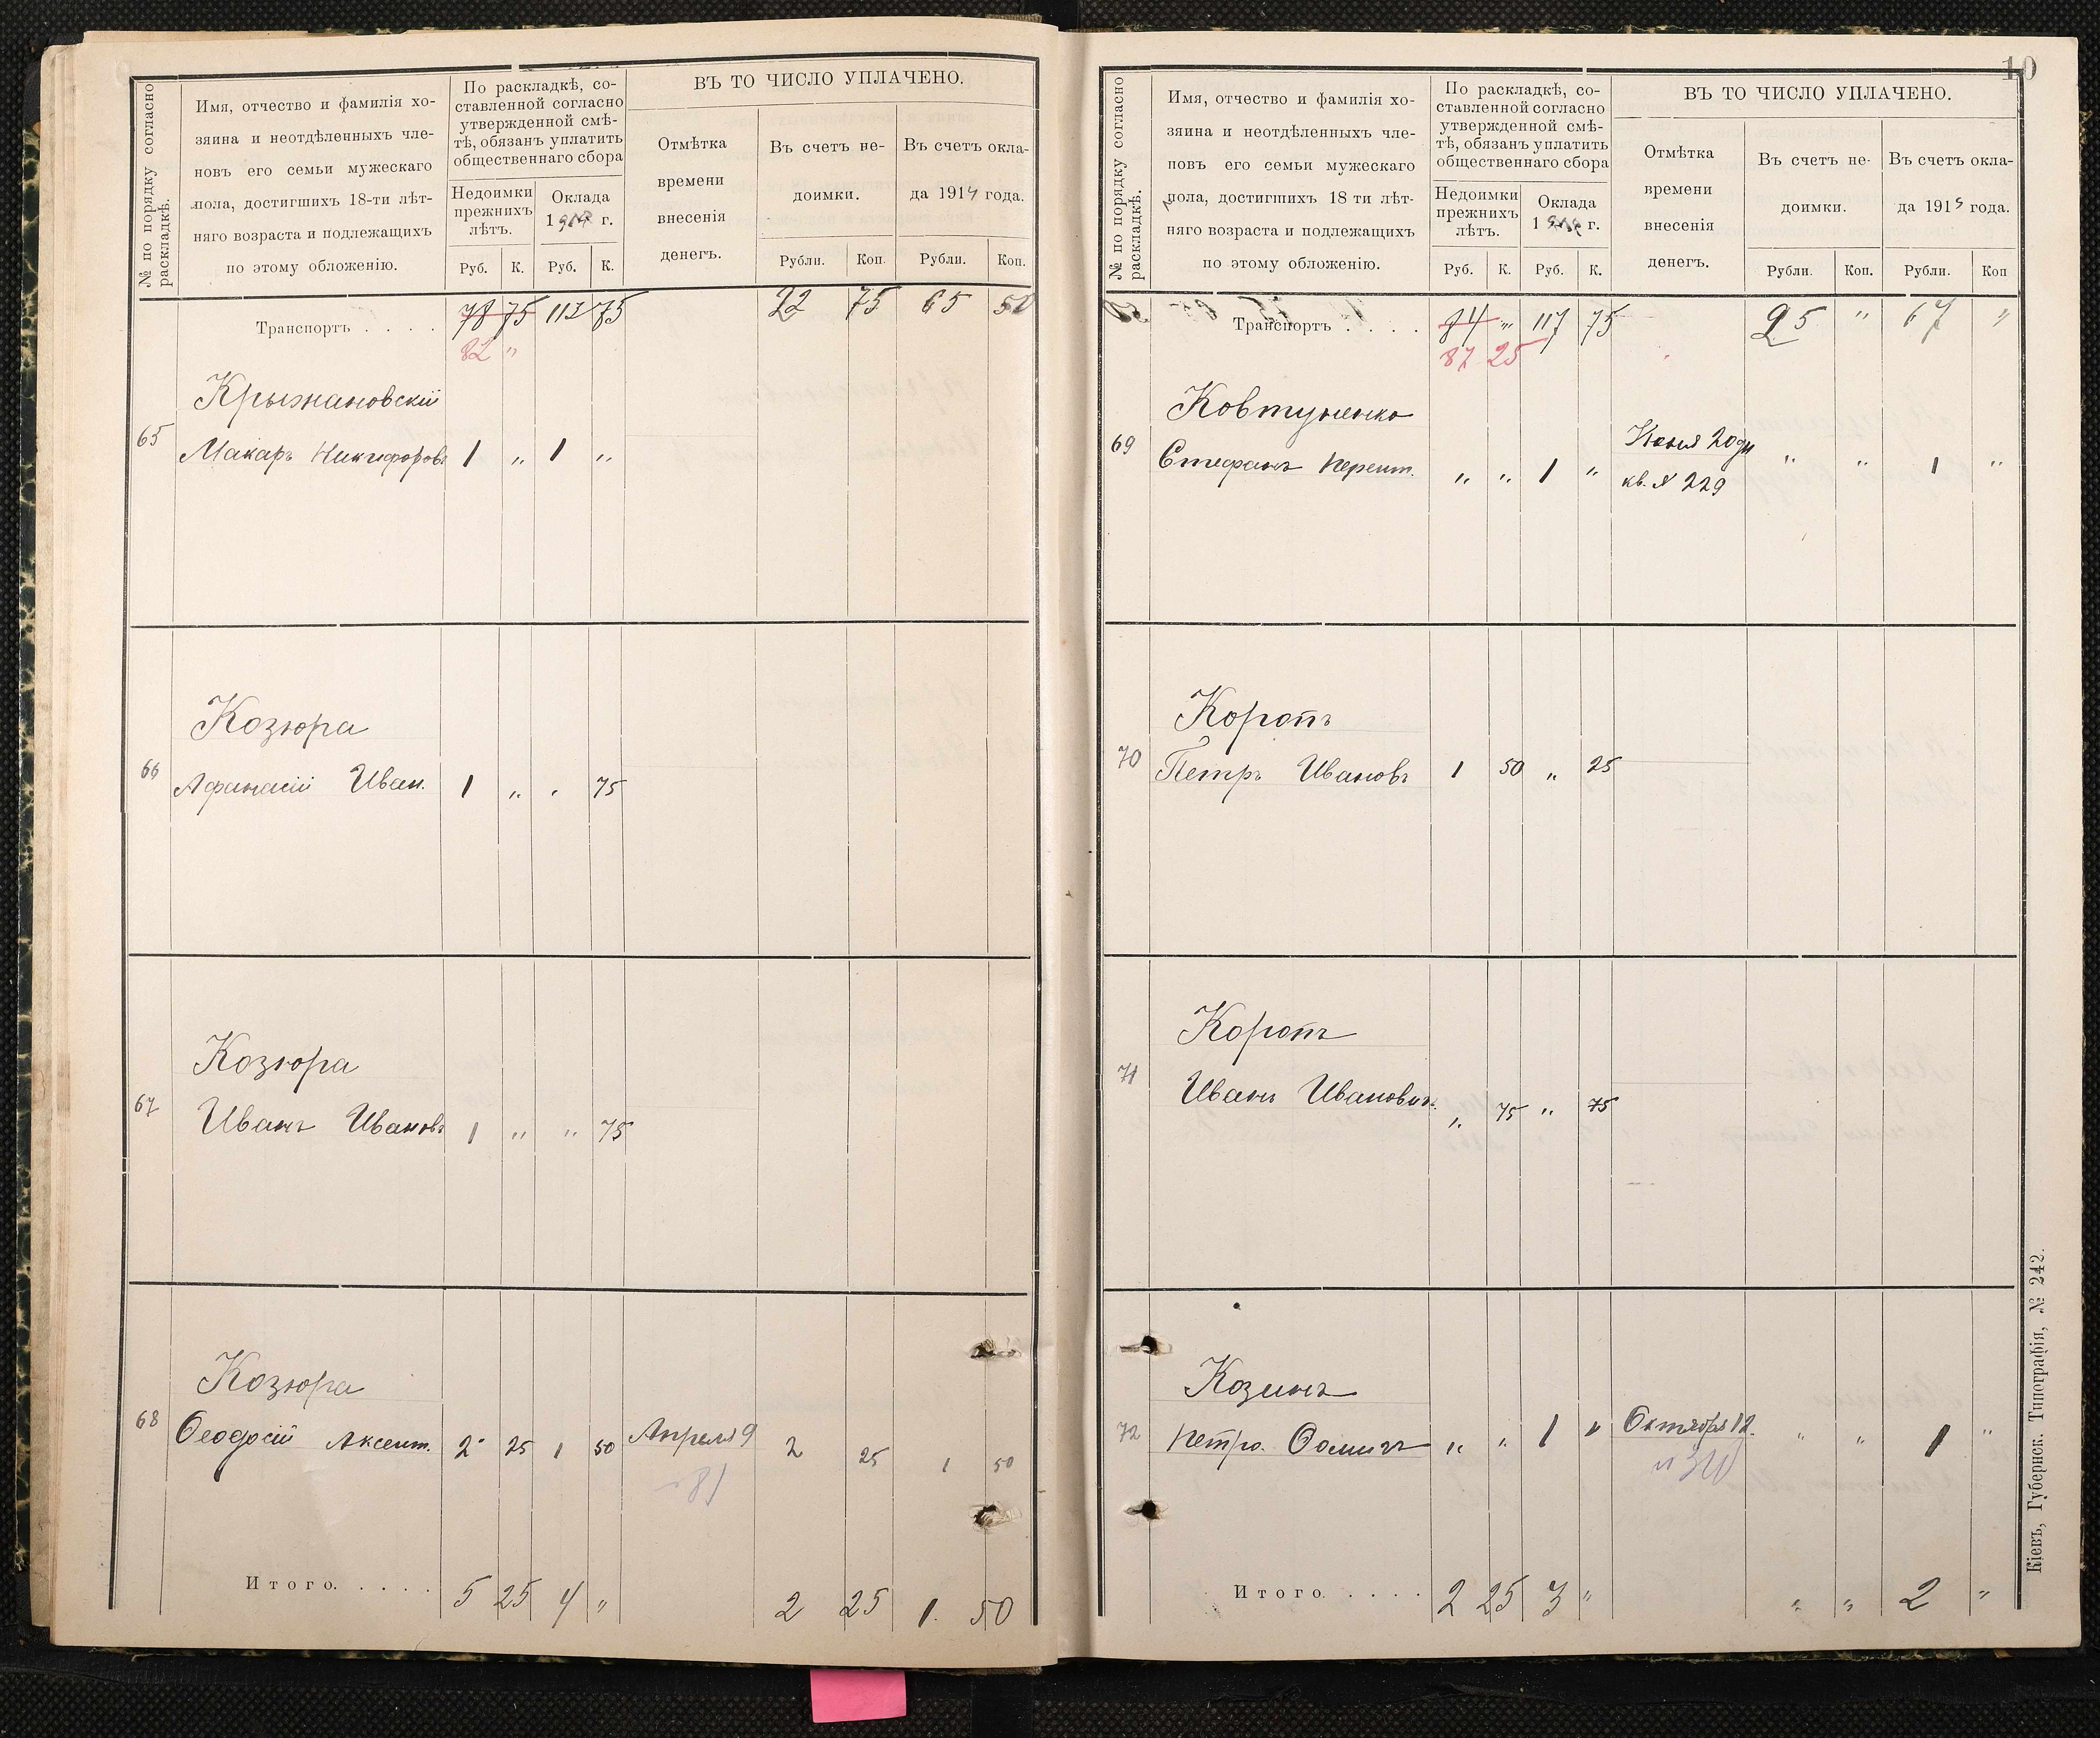 № по порядку согласно
раскладкѣ.
Имя, отчество и фамилія хо-
зяина и неотдѣленныхъ чле-
новъ его семьи мужескаго
пола, достигшихъ 18-ти лѣт-
няго возраста и подлежащихъ
по этому обложенію.
По раскладкѣ, со-
ставленной согласно
утвержденной смѣ-
тѣ, обязанъ уплатить
общественнаго сбора
Недоимки
прежнихъ
лѣтъ.
Оклада
1914 г.
Руб. К. Руб. К.
ВЪ ТО ЧИСЛО УПЛАЧЕНО.
Отмѣтка
времени
внесенія
денегъ.
Въ счетъ не-
доимки.
Въ счетъ окла-
да 1914 года.
Рубли. Коп. Рубли. Коп.
Транспортъ . . . . 78 75 113 75 22 75 65 50
82 "
Крыжановскій
65 Макаръ Никифоровъ 1 " 1 "
Козюра
66 Афанасій Иван. 1 " " 75
Козюра
67 Иванъ Ивановъ 1 " " 75
Козюра
68 Ѳеодосій Аксент. 2 25 1 50 Апреля 9 2 25 1 50
81
Итого. . . . . 5 25 4 " 2 25 1 50
10
№ по порядку согласно
раскладкѣ.
Имя, отчество и фамилія хо-
зяина и неотдѣленныхъ чле-
новъ его семьи мужескаго
пола, достигшихъ 18 ти лѣт-
няго возраста и подлежащихъ
по этому обложенію.
По раскладкѣ, со-
ставленной согласно
утвержденной смѣ-
тѣ, обязанъ уплатить
общественнаго сбора
Недоимки
прежнихъ
лѣтъ.
Оклада
1914 г.
Руб. К. Руб. К.
ВЪ ТО ЧИСЛО УПЛАЧЕНО.
Отмѣтка
времени
внесенія
денегъ.
Въ счетъ не-
доимки.
Въ счетъ окла-
да 191 года.
Рубли. Коп. Рубли. Коп
Транспортъ . . . . 84 " 117 75 25 " 67 "
87 25
Ковтуненко
69 Стефанъ " " 1 " Іюня 20 " " 1 "
кв. № 229
Коропъ
70 Петръ Ивановъ 1 50 " 25
Коропъ
71 Иванъ Ивановичъ " 75 " 75
Козинъ
72 Петро Ѳомичъ " " 1 " Октября 12. " " 1 "
Итого. . . . . 2 25 3 " " " 2 "
Кіевъ, Губернск. Типографія, № 242.